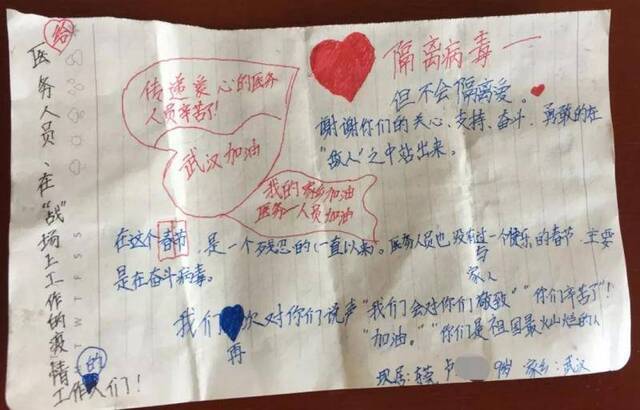 给
医务人员、在“战”场上工作的疫情
工作的人们！
传递爱心的医务
人员辛苦了！
武汉加油
我的家乡加油
医务人员加油
隔离病毒一
但不会隔离爱。
谢谢你们的关心、支持、奋斗、勇敢的在
“敌人”之中站出来。
在这个春节，是一个残忍的（一直以来）。医务人员也没有过一个快乐的春节，主要
与
家人
是在奋斗病毒。
我们 次对你们说声“我们会对你们敬致”“你们辛苦了”！
再
“加油。”“你们是祖国最火山烂的人
现居：东莞 卢 9岁 家乡：武汉